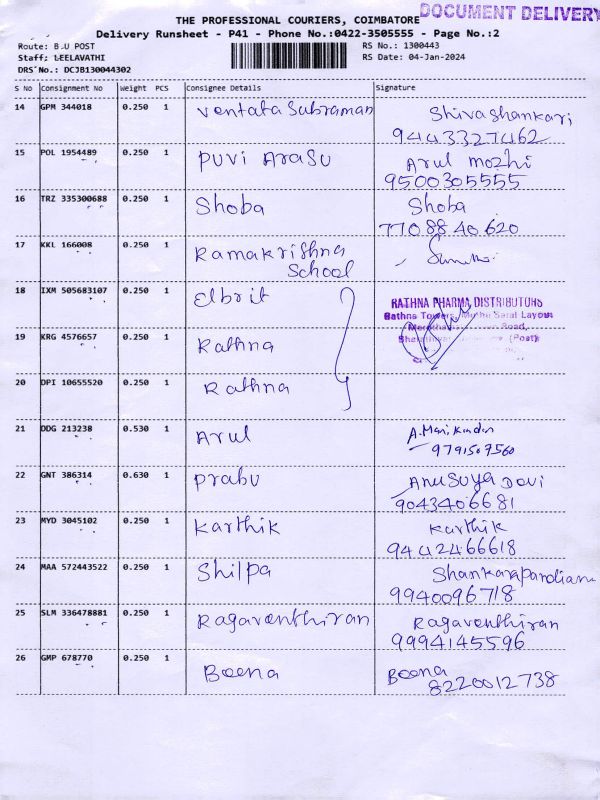 DOCUMENT DELIVERY
THE PROFESSIONAL COURIERS, COIMBATORE
Delivery Runsheet - P41 - Phone No.:0422-3505555 - Page No.:2
Route: B.U POST RS No.: 1300443
Staff: LEELAVATHI RS Date: 04-Jan-2024
DRS No.: DCJB130044302
S No Consignment No Weight PCS Consignee Details Signature
14 GPM 344018 0.250 1 Ventata Subraman Shivashankari
9443327462
15 POL 1954489 0.250 1 Puvi Arasu Arul mozhi
9500305555
16 TRZ 335300688 0.250 1 Shoba Shoba
7708840620
17 KKL 166008 0.250 1 Ramakrishna
School
18 IXM 505683107 0.250 1 Elbrit RATHNA PHARMA DISTRIBUTORS
Rathna Towers, Layout
Road,
(Post)
19 KRG 4576657 0.250 1 Rathna
20 DPI 10655520 0.250 1 Rathna
21 DDG 213238 0.530 1 Arul A. Manikandan
9791507560
22 GNT 386314 0.630 1 prabu Anusuya Devi
9043406681
23 MYD 3045102 0.250 1 Karthik Karthik
9442466618
24 MAA 572443522 0.250 1 Shilpa Shankarapandianu
9940096718
25 SLM 336478881 0.250 1 Ragaventhiran Ragaventhiran
9994145596
26 GMP 678770 0.250 1 Beena Beena
8220012738